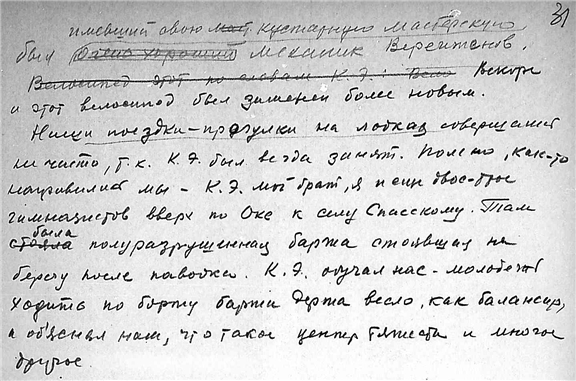 31
имевший свою кустарную мастерскую
был очень хороший механик Веренитенов.
Велосипед этот по словам К.Э.: Вело Вскоре
и этот велосипед был заменен более новым.
Наши поездки-прогулки на лодках совершались
не часто, т.к. К.Э. был всегда занят. Помню, как-то
направились мы – К.Э. мой брат, я и еще двое-трое
гимназистов вверх по Оке к селу Спасскому. Там
была
стояла полуразрушенная баржа стоявшая на
берегу после паводка. К.Э. обучал нас - молодежь
ходить по борту баржи держа весло, как балансир,
и объяснял нам, что такое центр тяжести и многое
другое.